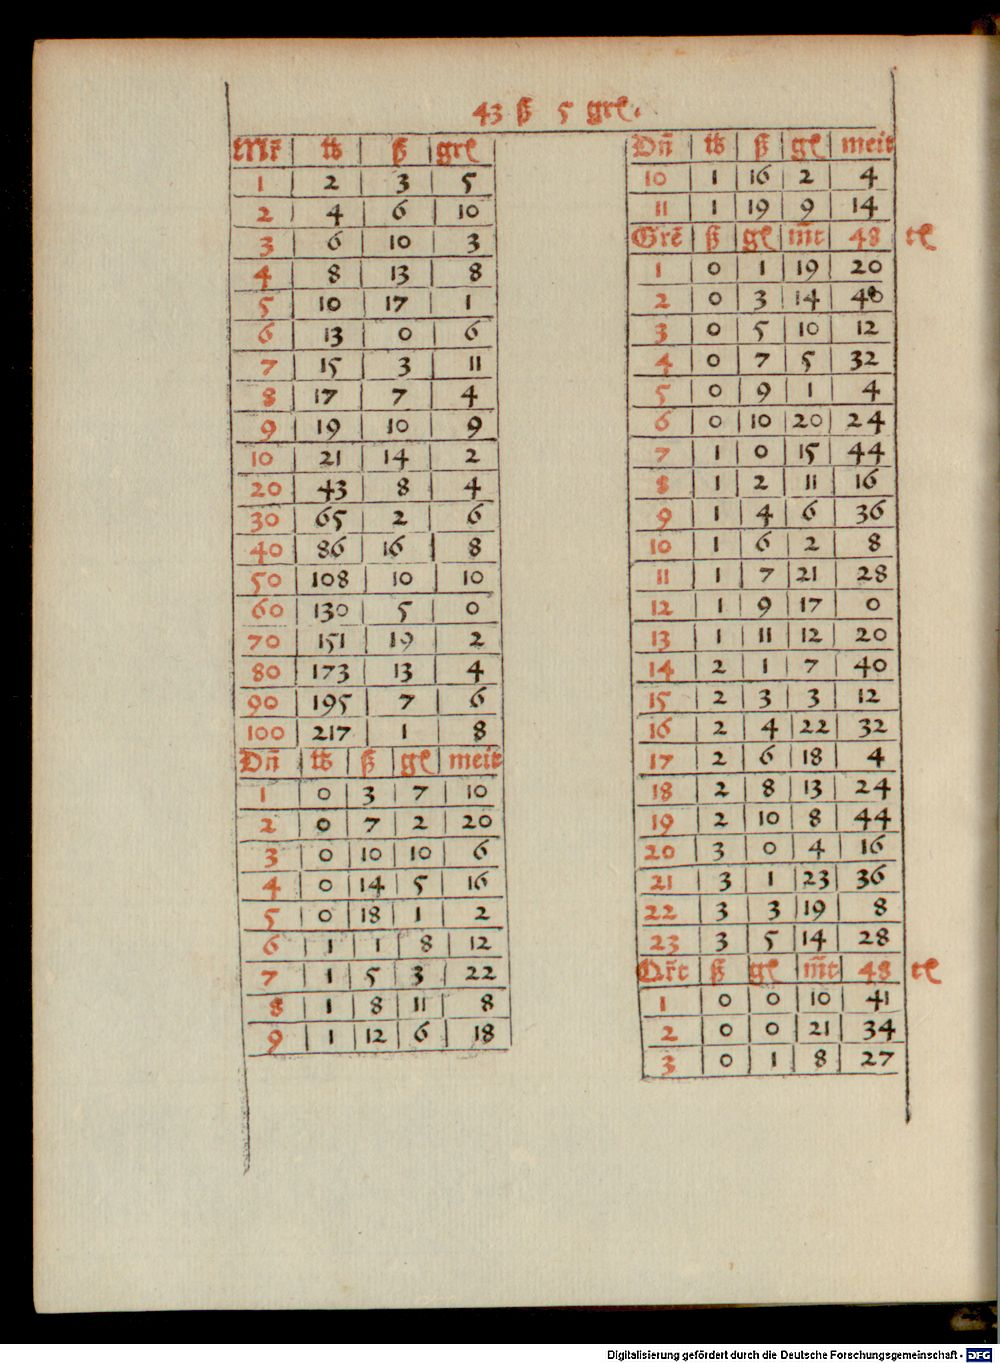 43 ß 5 grł.
Mr̄ | ℔ | ß | grł
1 | 2 | 3 | 5
2 | 4 | 6 | 10
3 | 6 | 10 | 3
4 | 8 | 13 | 8
5 | 10 | 17 | 1
6 | 13 | 0 | 6
7 | 15 | 3 | 11
8 | 17 | 7 | 4
9 | 19 | 10 | 9
10 | 21 | 14 | 2
20 | 43 | 8 | 4
30 | 65 | 2 | 6
40 | 86 | 16 | 8
50 | 108 | 10 | 10
60 | 130 | 5 | 0
70 | 151 | 19 | 2
80 | 173 | 13 | 4
90 | 195 | 7 | 6
100 | 217 | 1 | 8
Dn̄ | ℔ | ß | gł | meit
1 | 0 | 3 | 7 | 10
2 | 0 | 7 | 2 | 20
3 | 0 | 10 | 10 | 6
4 | 0 | 14 | 5 | 16
5 | 0 | 18 | 1 | 2
6 | 1 | 1 | 8 | 12
7 | 1 | 5 | 3 | 22
8 | 1 | 8 | 11 | 8
9 | 1 | 12 | 6 | 18
Dn̄ | ℔ | ß | gł | meit
10 | 1 | 16 | 2 | 4
11 | 1 | 19 | 9 | 14
Grē | ß | gł | m̄t | 48 tł
1 | 0 | 1 | 19 | 20
2 | 0 | 3 | 14 | 40
3 | 0 | 5 | 10 | 12
4 | 0 | 7 | 5 | 32
5 | 0 | 9 | 1 | 4
6 | 0 | 10 | 20 | 24
7 | 1 | 0 | 15 | 44
8 | 1 | 2 | 11 | 16
9 | 1 | 4 | 6 | 36
10 | 1 | 6 | 2 | 8
11 | 1 | 7 | 21 | 28
12 | 1 | 9 | 17 | 0
13 | 1 | 11 | 12 | 20
14 | 2 | 1 | 7 | 40
15 | 2 | 3 | 3 | 12
16 | 2 | 4 | 22 | 32
17 | 2 | 6 | 18 | 4
18 | 2 | 8 | 13 | 24
19 | 2 | 10 | 8 | 44
20 | 3 | 0 | 4 | 16
21 | 3 | 1 | 23 | 36
22 | 3 | 3 | 19 | 8
23 | 3 | 5 | 14 | 28
Qr̄t | ß | gł | m̄t | 48 tł
1 | 0 | 0 | 10 | 41
2 | 0 | 0 | 21 | 34
3 | 0 | 1 | 8 | 27
Digitalisierung gefördert durch die Deutsche Forschungsgemeinschaft - DFG